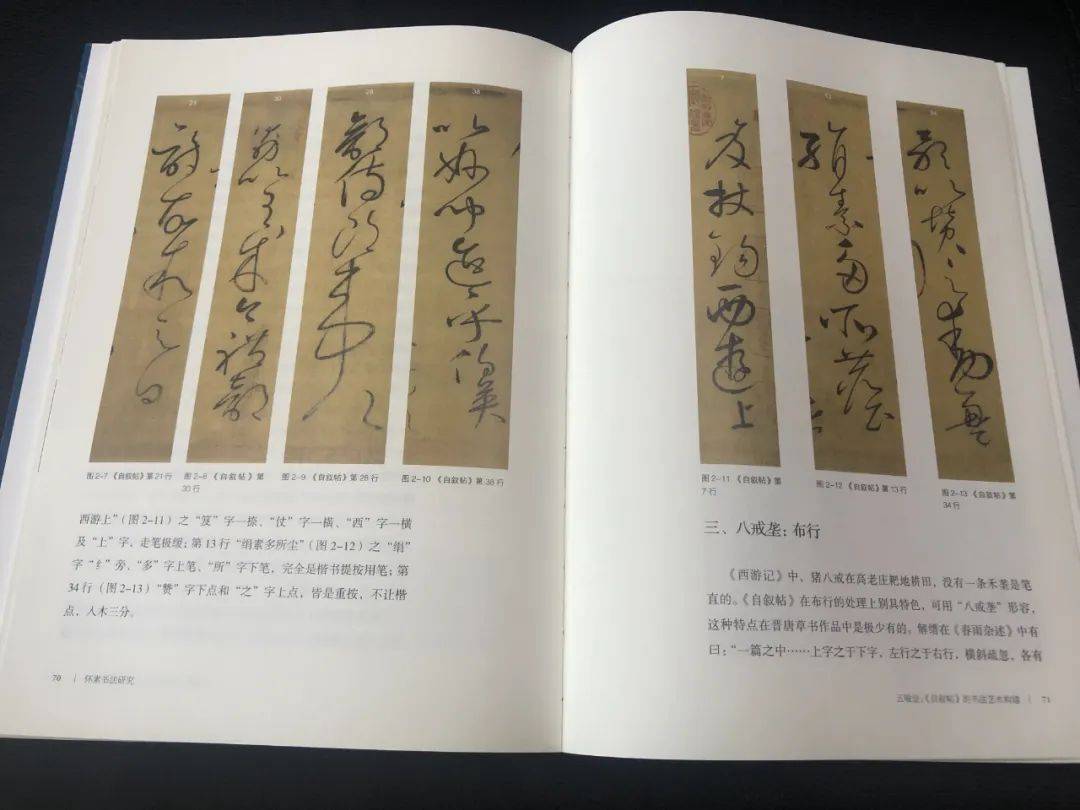 21
詩故敘之曰
30
勖以有成今禮部
28
部侍郎韋公
38
以妙聞迨乎伯英
图2-7《自叙帖》第21行
图2-8 《自叙帖》第
30行
图2-9 《自叙帖》第28行
图2-10 《自叙帖》第38行
西游上”（图2-11）之“笈”字一捺、“仗”字一横、“西”字一横
及“上”字，走笔极缓；第13行“绢素多所尘”（图2-12）之“绢”
字“纟”旁、“多”字上笔、“所”字下笔，完全是楷书提按用笔；第
34行（图2-13）“赞”字下点和“之”字上点，皆是重按，不让楷
点，入木三分。
70 | 怀素书法研究
7
笈杖錫西遊上
13
絹素多所塵
34
歌以贊之動盈
图2-11 《自叙帖》第
7行
图2-12 《自叙帖》第13行
图2-13 《自叙帖》第
34行
三、八戒垄：布行
《西游记》中，猪八戒在高老庄耙地耕田，没有一条禾垄是笔
直的。《自叙帖》在布行的处理上别具特色，可用“八戒垄”形容，
这种特点在晋唐草书作品中是极少有的。解缙在《春雨杂述》中有
曰：“一篇之中……上字之于下字，左行之于右行，横斜疏忽，各有
《自叙帖》的书法艺术 | 71